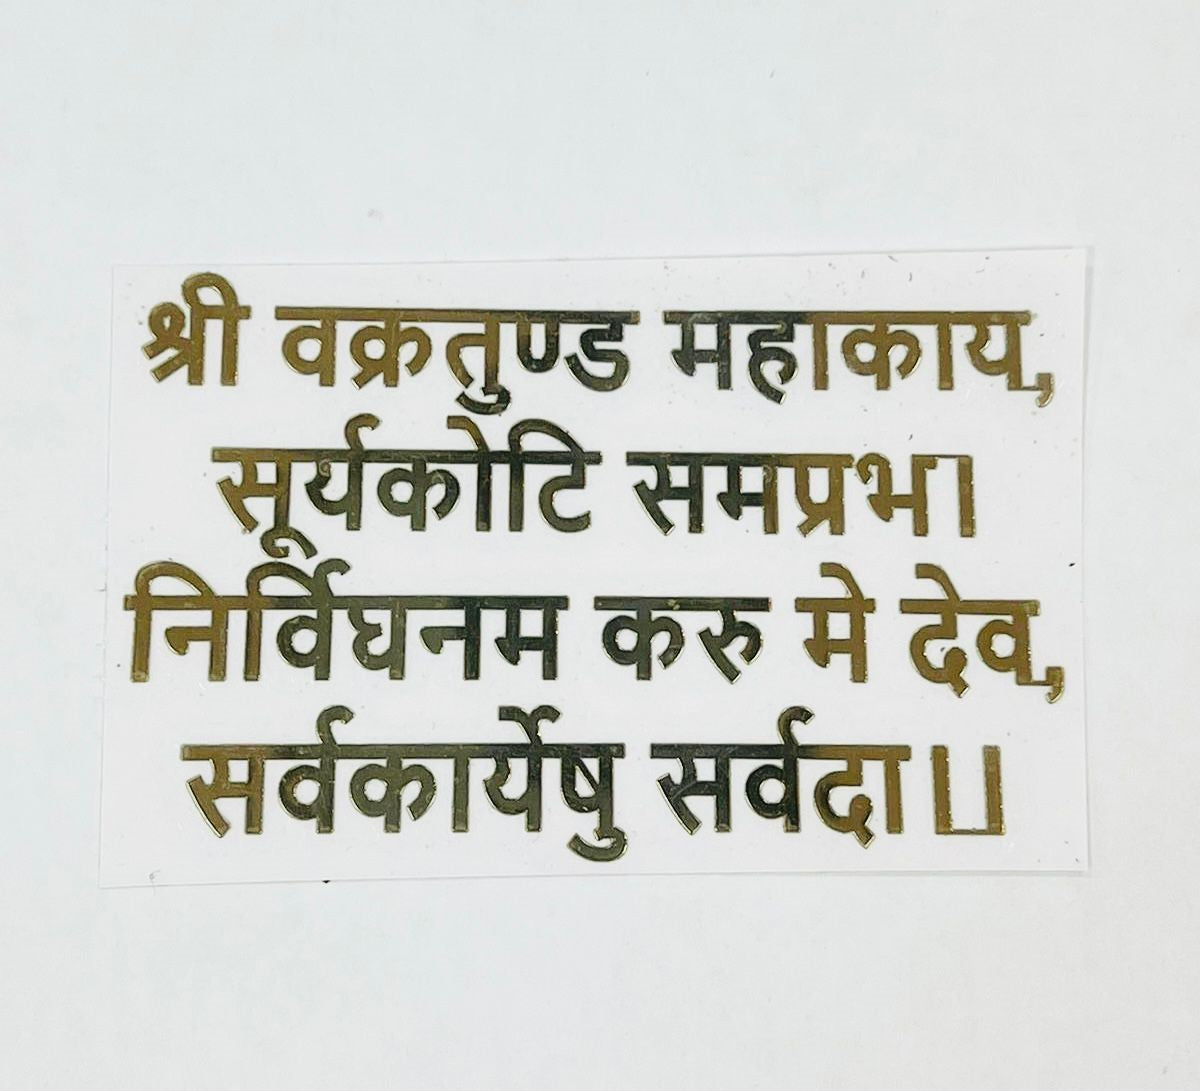 श्री वक्रतुण्ड महाकाय,
सूर्यकोटि समप्रभ।
निर्विघनम करु मे देव,
सर्वकार्येषु सर्वदा॥